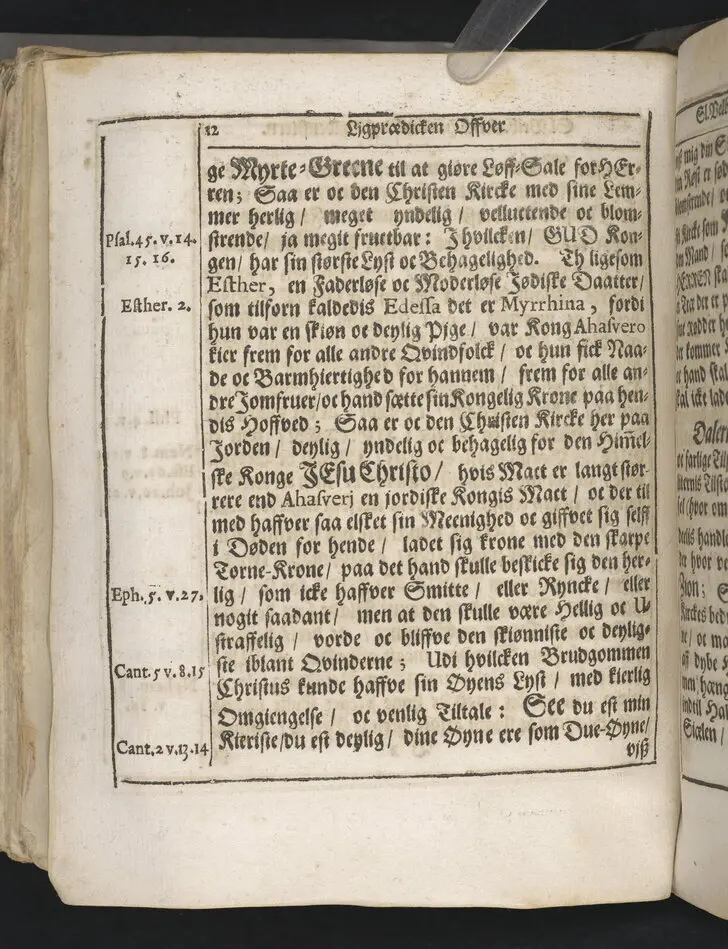 12 Ligprædicken Offver
ge Myrte-Greene til at giøre Løff-Sale for HEr-
ren; Saa er oc den Christen Kircke med sine Lem-
mer herlig / meget yndelig / velluctende oc blom-
Psal. 45. v. 14. strende / ja megit fructbar: J hvilcken / GUD Kon-
15. 16. gen / har sin største Lyst oc Behagelighed. Th ligesom
Esther, en Faderløse oc Moderløse Jødiske Daatter /
Esther. 2. som tilforn kaldedis Edessa det er Myrrhina, fordi
hun var en skiøn oc deylig Pige / var Kong Ahasvero
kier frem for alle andre Qvindfolck / oc hun fick Naa-
de oc Barmhiertighed for hannem / frem for alle an-
dre Jomfruer / oc hand sætte sin Kongelig Krone paa hen-
dis Hoffved; Saa er oc den Christen Kircke her paa
Jorden / deylig / yndelig oc behagelig for den Him̃el-
ske Konge JEsu Christo / hvis Mact er langt stør-
rere end Ahasverj en jordiske Kongis Mact / oc der til
med haffver saa elsket sin Meenighed oc giffvet sig self
i Døden for hende / ladet sig krone med den skarpe
Torne-Krone / paa det hand skulle beskicke sig den her-
Eph. 5. v. 27. lig / som icke haffver Smitte / eller Ryncke / eller
nogit saadant / men at den skulle være Hellig oc U-
straffelig / vorde oc bliffve den skiønniste oc deylig-
ste iblant Qvinderne; Udi hvilcken Brudgommen
Cant. 5 v. 8. 15 Christus kunde haffve sin Øyens Lyst / med kierlig
Omgiengelse / oc venlig Tiltale: See du est min
Cant. 2 v. 13. 14 Kieriste / du est deylig / dine Øyne ere som Due-Øyne /
viß